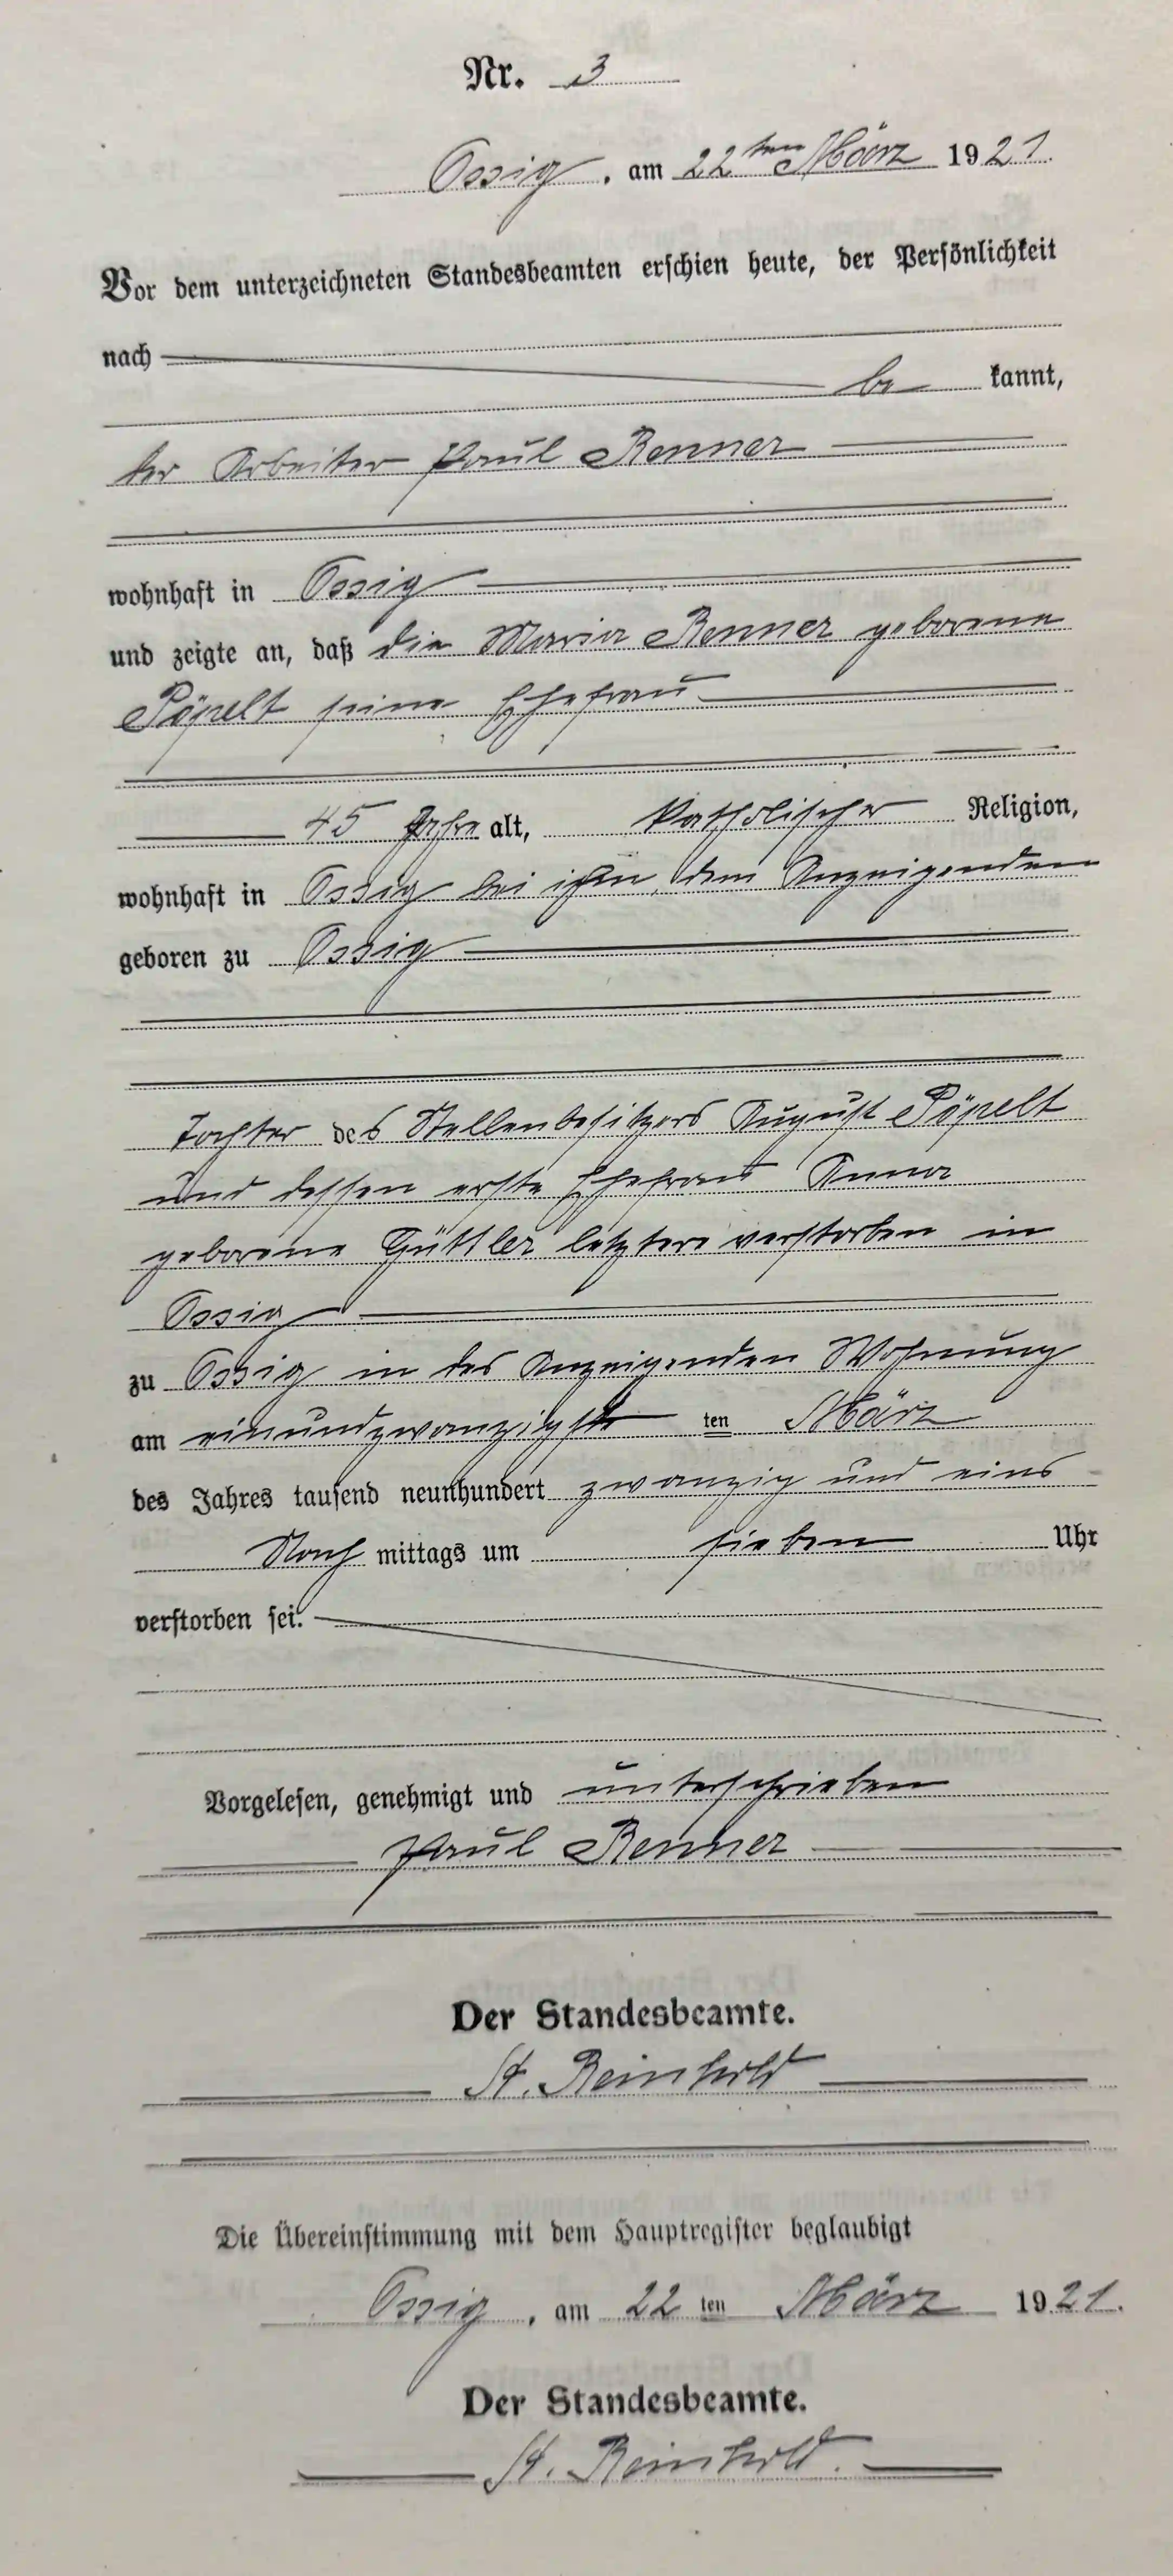 Nr. 3
Ossig, am 22ten März 1921.
Vor dem unterzeichneten Standesbeamten erschien heute, der Persönlichkeit
nach
be kannt,
der Arbeiter Paul Renner
wohnhaft in Ossig
und zeigte an, daß die Maria Renner geborene
Pöpelt seine Ehefrau
45 Jahre alt, katholischer Religion,
wohnhaft in Ossig bei ihm, dem Anzeigenden
geboren zu Ossig
Tochter des Stellenbesitzers August Pöpelt
und dessen erste Ehefrau Anna
geborene Güttler letztere verstorben in
Ossig
zu Ossig in des Anzeigenden Wohnung
am einundzwanzigsten ten März
des Jahres tausend neunhundert zwanzig und eins
Nach mittags um sieben Uhr
verstorben sei.
Vorgelesen, genehmigt und unterschrieben
Paul Renner
Der Standesbeamte.
St. Reinhold
Die Übereinstimmung mit dem Hauptregister beglaubigt
Ossig, am 22 ten März 1921.
Der Standesbeamte.
St. Reinhold.